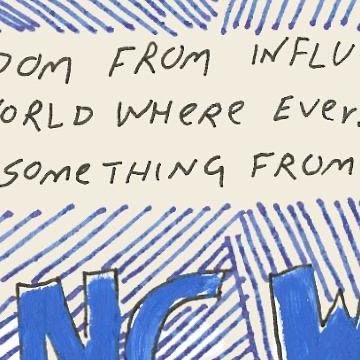 DOM FROM INFLU
WORLD WHERE EVER
SOMETHING FROM
NG W